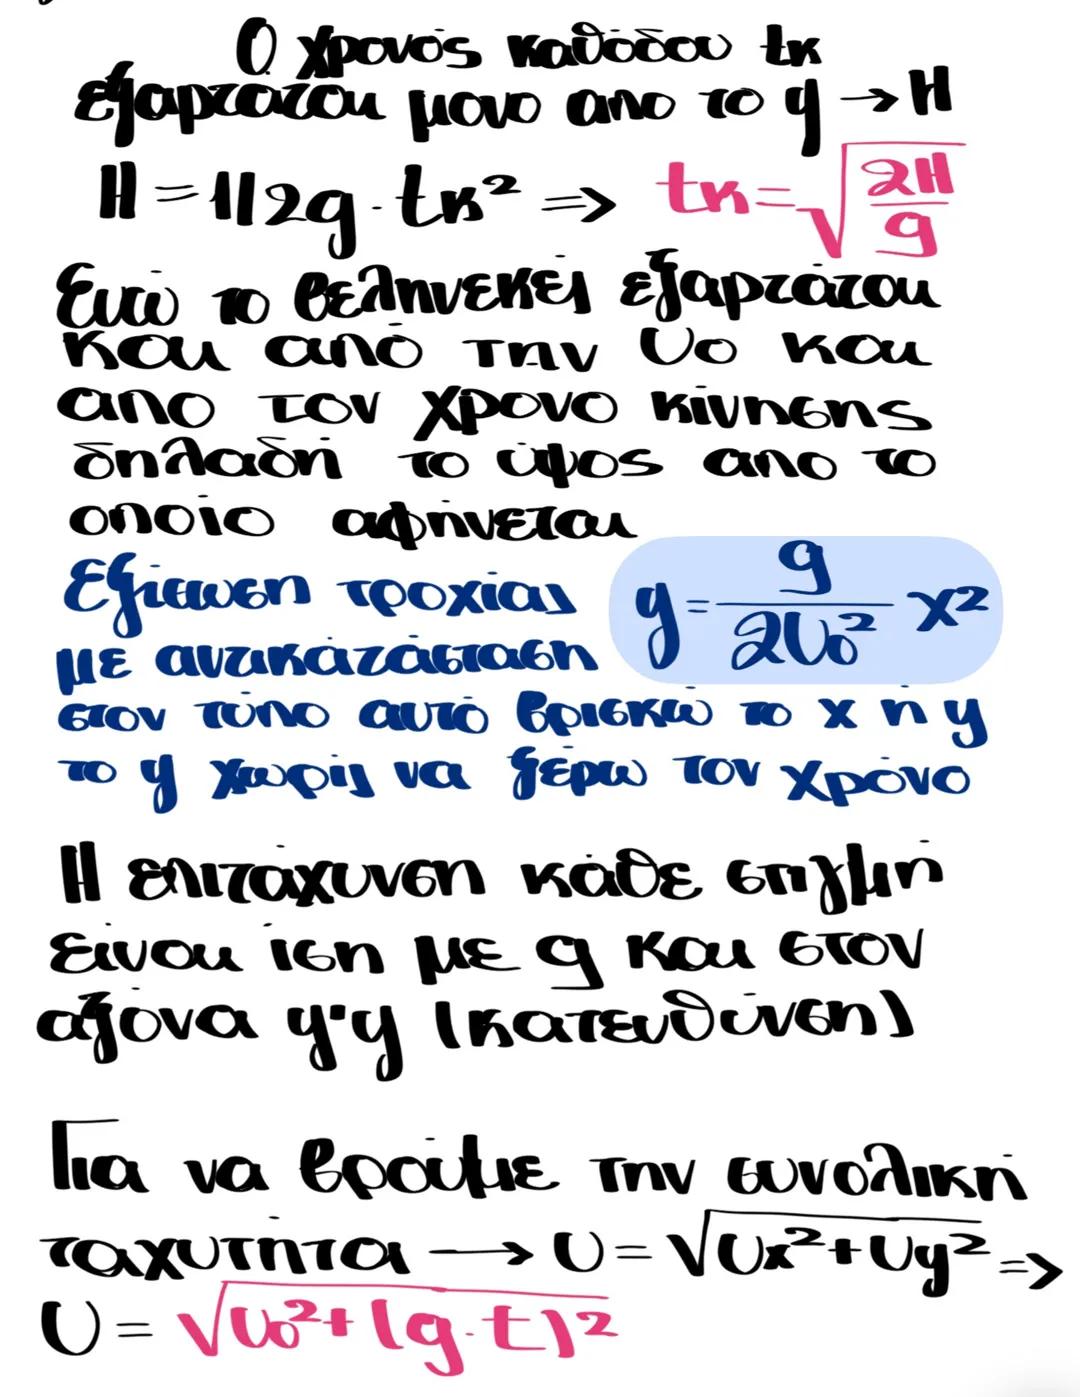 Ο χρονός καθόδου tκ
εξαρτάται μόνο απο το y → H
H = 1/2g · tκ² => tκ = √(2H/g)
Ενώ το βεληνεκές εξαρτάται
και από την υο και
απο τον χρονο κίνησης
δηλαδή το ύψος απο το
οποίο αφήνεται
Εξίσωση τροχιάς y = g/2υ₀² x²
με αντικατάσταση
στον τύπο αυτό βρίσκω το x ή y
το y χωρίς να ξέρω τον χρόνο
Η επιτάχυνση κάθε στιγμή
είναι ίση με g και στον
αξονα y'y (κατευθύνση)
Για να βρούμε την συνολική
ταχυτητα → υ = √υx² + υy² =>
υ = √υ₀² + (g·t)²